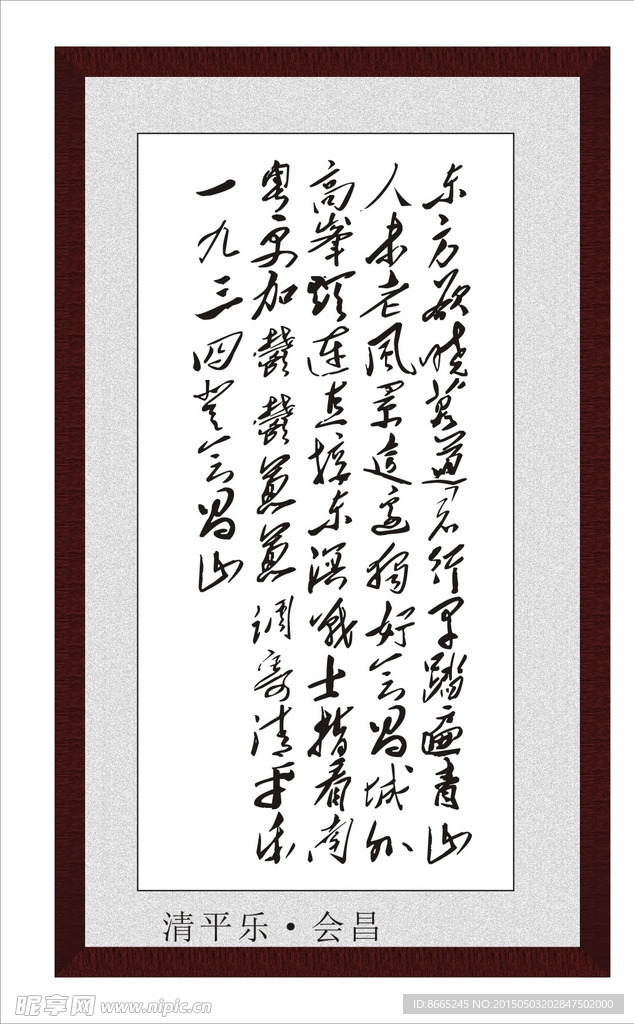 东方欲晓莫道君行早踏遍青山
人未老风景这边独好会昌城外
高峯颠连直接东溟战士指看南
粤更加鬱鬱葱葱调寄清平乐
一九三四登会昌山
清平乐·会昌
昵享网 www.nipic.cn
ID:8665245 NO:20150503202847502000